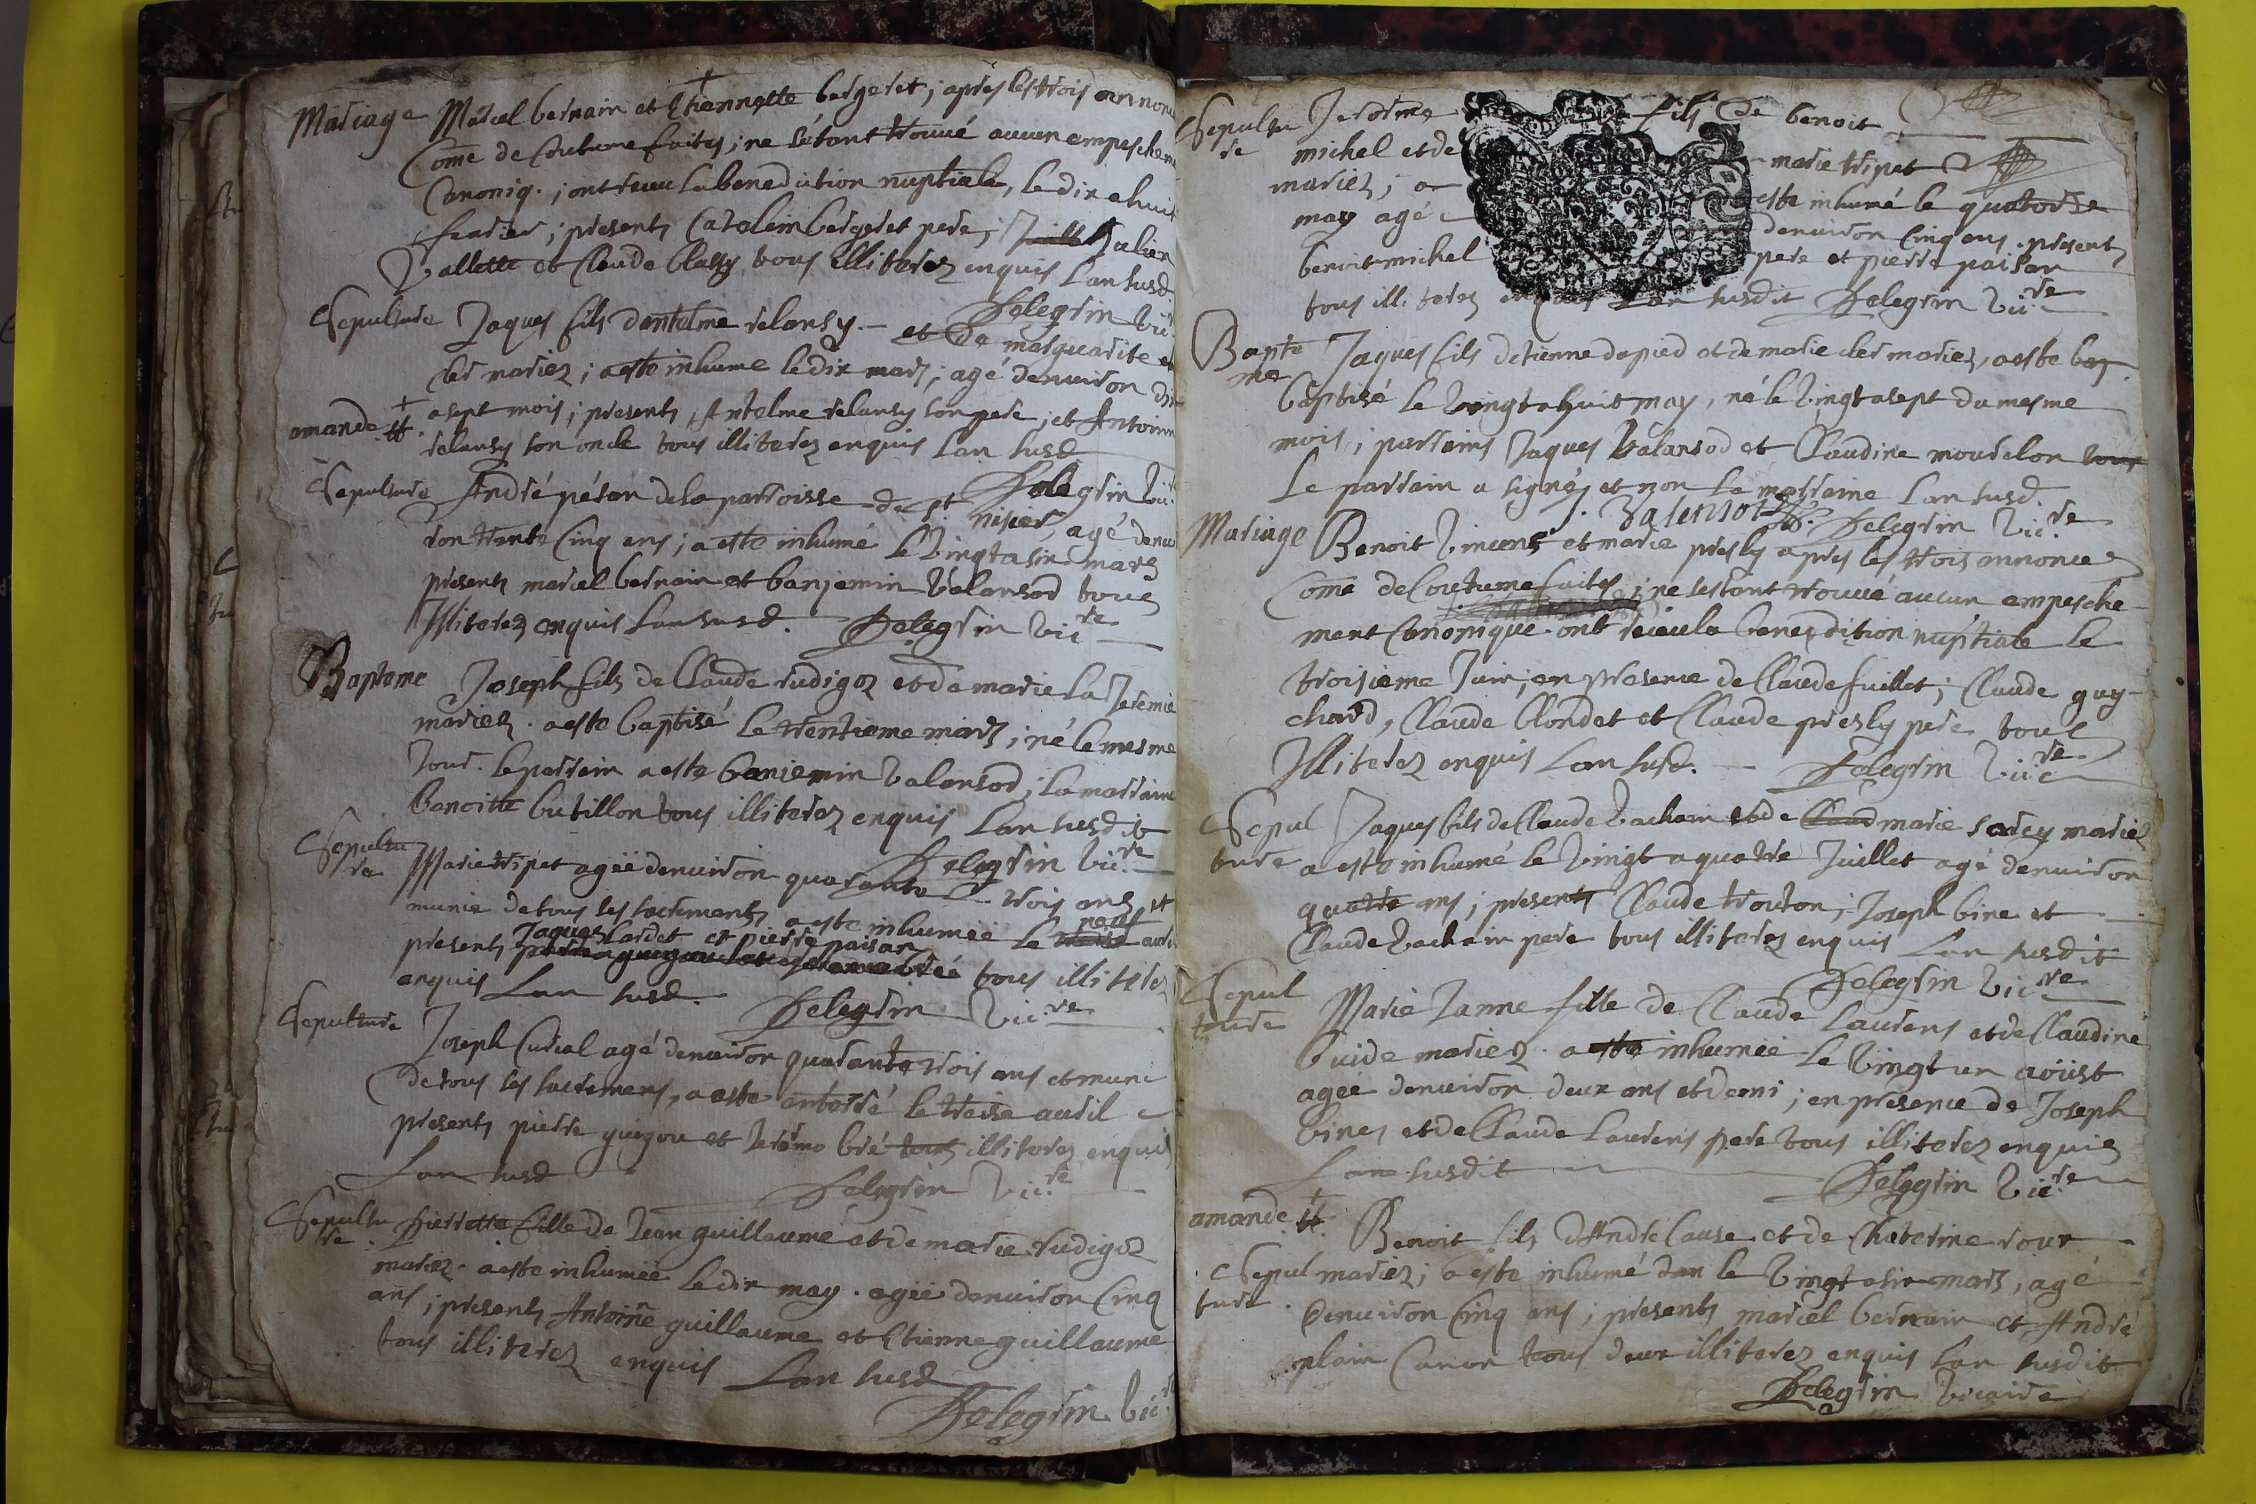 Mariage Marcel bernain et Etiennette bergeret ; apres les trois annonc
Come de Coutume faites ; ne s'étant trouvé aucun empescheme
Canoniq. ; ont receu la benediction nuptiale, le dix e huit
feurier ; presents Catolein bergeret pere ; Julien
Vallette et Claude Blassy tous illiterez enquis L'an susd.
Pelegrin Vic.re
Sepulture Jaques fils dantelme relansy et De marguarite
cler mariez ; a esté inhume le dix mars ; agé denuiron dix
amande tt a sept mois ; presents, Antelme relansy son pere ; et Antoine
relansy son oncle tous illiterez enquis Lan susd
Pelegrin Vic.re
Sepulture André pésan de la parroisse de st nisier, agé denui
ron trente Cinq ans ; a esté inhumé le Vingt a six mars
presents marcel bernain et banjemin Valansod tous
Illiterez enquis Lan susd. Pelegrin Vic.re
Baptome Joseph fils de Claude rudigoz et de marie La Jeremie
mariez . a esté baptisé Le trentieme mars ; né le mesme
Jour . le parrain a esté banjemin Valansod ; La marraine
Benoitte butillon tous illiterez enquis Lan susdit
Pelegrin Vic.re
Sepultu Marie tripet agée denuiron quarante trois ans et
re munie de tous les sacrements, a esté inhumée Le neuf auril
presents Jaques Lardet et pierre paisan tous illiterez
enquis Lan susd. Pelegrin Vic.re
Sepulture Joseph Curial agé denuiron quarante trois ans et muni
de tous les sacremens, a esté enterré le treise auril
presents pierre guigou et Jerôme bré tous illiterez enquis
Lan susd Pelegrin Vic.re
Sepultu Pierrette fille de Jean guillaume et de marie rudigoz
re mariez . a esté inhumée le dix may . agée denuiron Cinq
ans ; presents Antoine guillaume et Etienne guillaume
tous illiterez enquis Lan susd
Pelegrin Vic.re
Sepultu Jerosme fils De benoit
re michel et de marie tripet
mariez ; a esté inhumé le quatorze
may agé denuiron Cinq ans . presents
benoit michel pere et pierre paisan
tous illiterez enquis Lan susdit Pelegrin Vic.re
Bapte Jaques fils detienne depied et de marie cler mariez, a esté bap
me baptisé le Vingt a huit may, né le Vingt a sept du mesme
mois ; parrains Jaques Valansod et Claudine mourelon
Le parrain a signé ; et non La marraine Lan susd.
Valensot Pelegrin Vic.re
Mariage Benoit Vincent et marie presly apres les trois annonces
Come de Coutume faites ; ne s'estant trouvé aucun empesche
ment Canonique . ont receu la benediction nuptiale le
troisieme Juin ; en presence de Claude fuillet ; Claude guy
chard, Claude blondet et Claude presly pere tous
Illiterez enquis Lan susd. Pelegrin Vic.re
Sepul Jaques fils de Claude Vachain et de marie sarcy mariez
ture a esté inhumé le Vingt a quatre Juillet agé denuiron
quatre ans ; presents Claude trouton ; Joseph bine et
Claude Vachain pere tous illiterez enquis Lan susdit
Pelegrin Vic.re
Sepul Marie Janne fille de Claude Laurens et de Claudine
ture buide mariez . a esté inhumée le Vingt un aoust
agée denuiron deux ans et demi ; en presence de Joseph
bines et de Claude Laurens pere tous illiterez enquis
Lan susdit Pelegrin Vic.re
amande tt Benoit fils d'Andre Cause et de Chaterine rour
Sepul mariez ; a esté inhumé le Vingt a six mars, agé
ture . denuiron Cinq ans ; presents marcel bernain et André
plain tous deux illiterez enquis Lan susdit
Pelegrin Vicaire